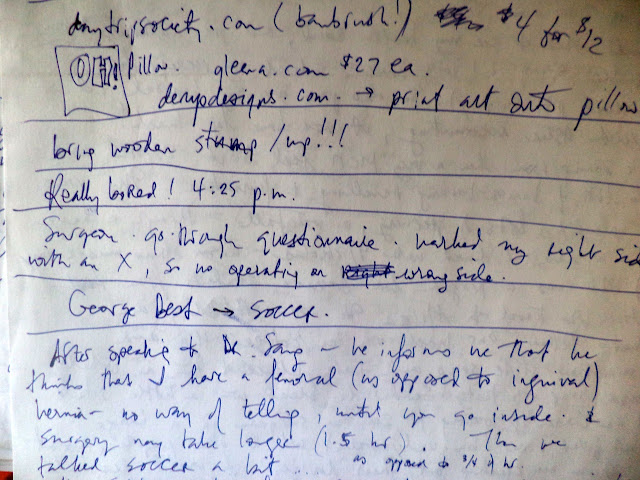 .com (bambrush!) $4 for $12
OH! Pillow. gleena.com $27 ea.
denydesigns.com. → print art onto pillow
bring wooden stump /wp!!!
Really bored! 4:25 p.m.
Surgeon. go through questionnaire. marked my right side
with an X, so no operating on right wrong side.
George Best → soccer.
After speaking to Dr. Sang – he informs me that he
thinks that I have a femoral (as opposed to inguinal)
hernia – no way of telling, until you go inside.
surgery may take longer (1.5 hr). Then we
talked soccer a bit... as opposed to 3/4 of hr.